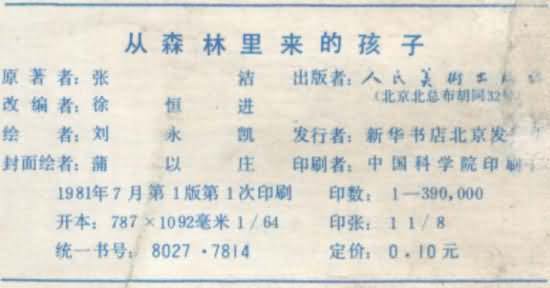 从森林里来的孩子
原著者：张 洁 出版者：人民美術出
（北京北总布胡同32号
改编者：徐恒进
绘者：刘永凯 发行者：新华书店北京发
封面绘者：蒲以庄 印刷者：中国科学院印刷
1981年7月第1版第1次印刷 印数：1—390,000
开本：787×1092毫米1/64 印张：1 1/8
统一书号：8027·7814 定价：0.10元